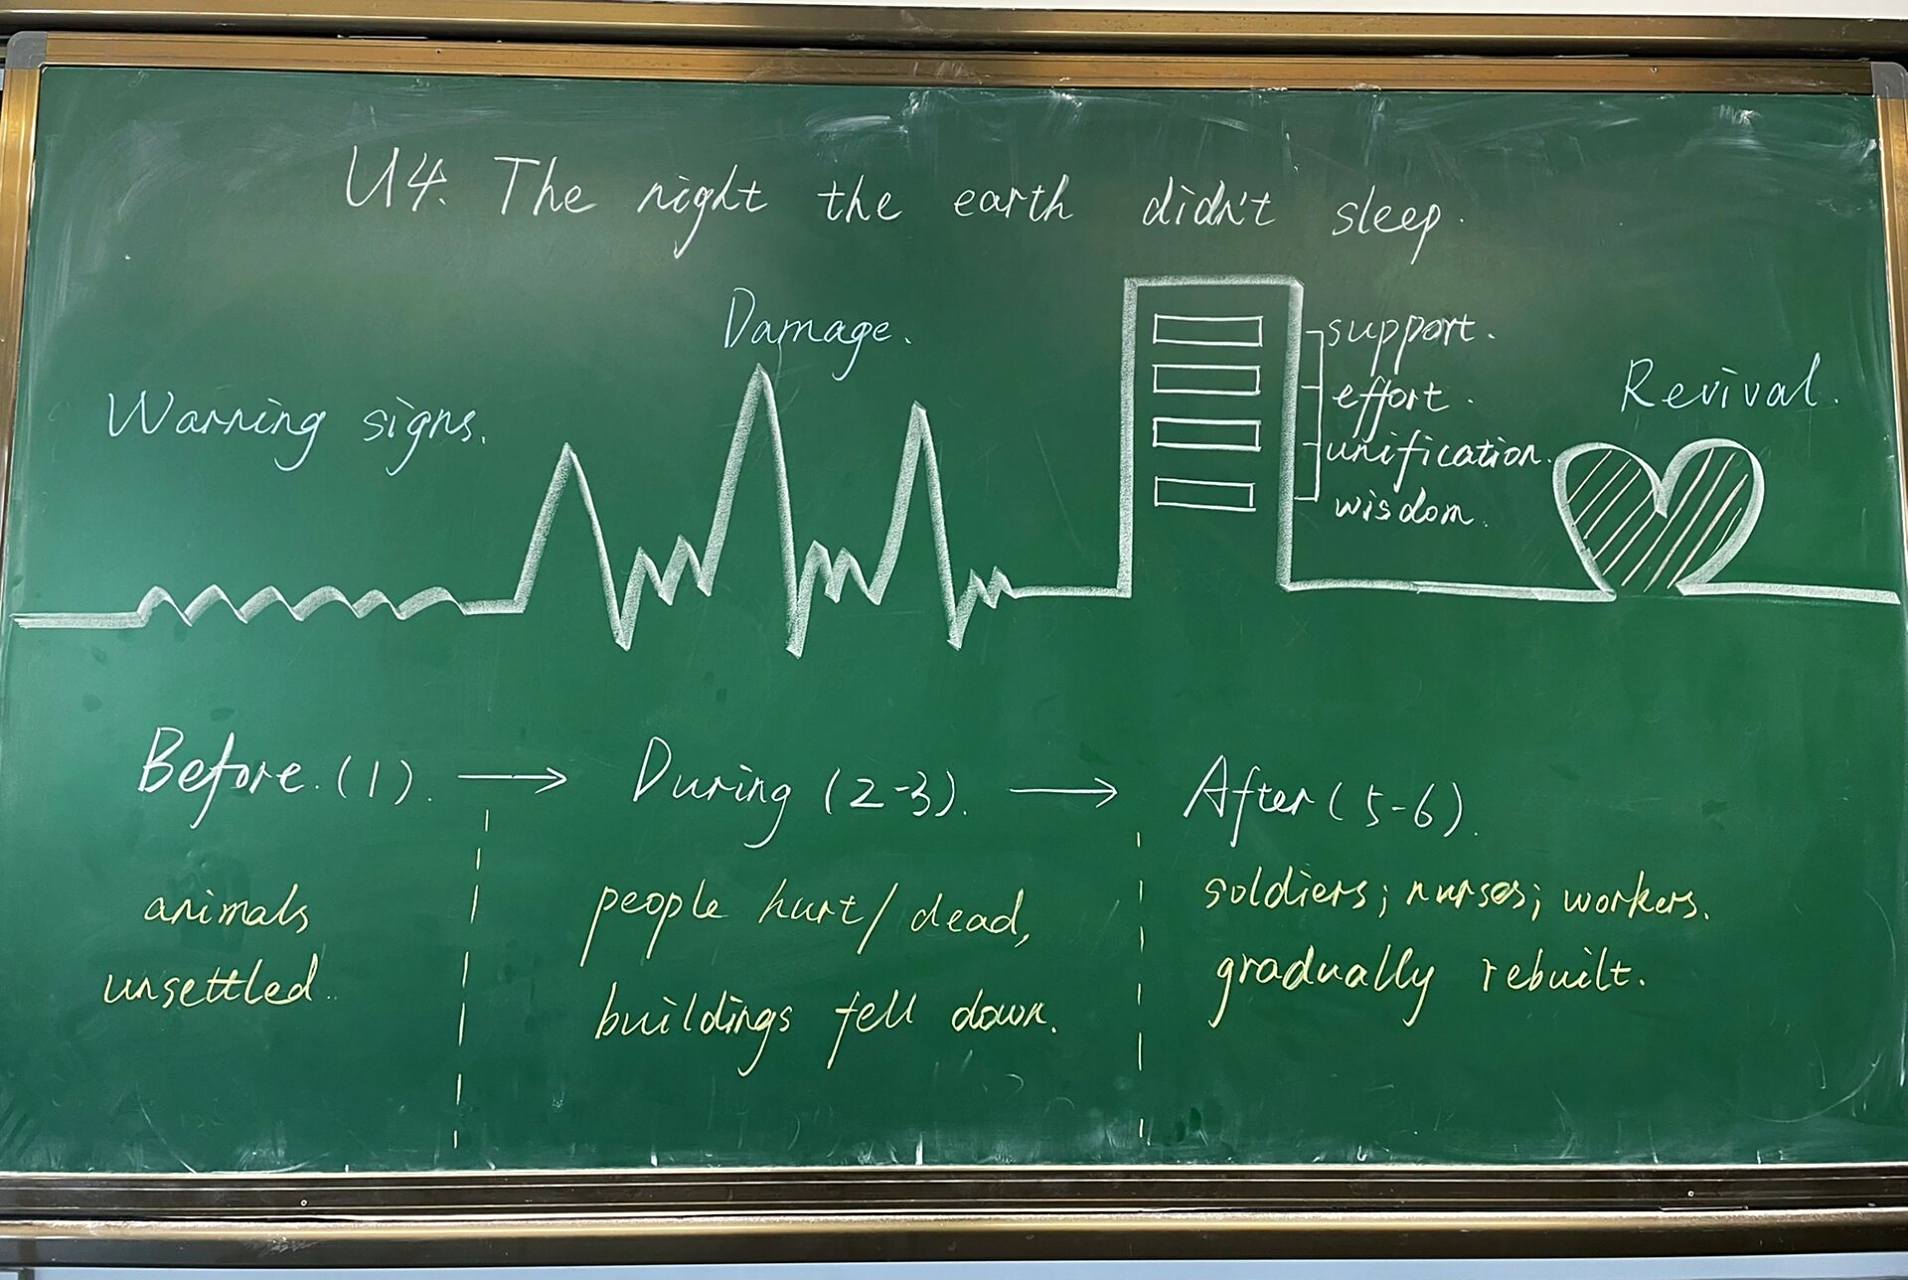 U4. The night the earth didn't sleep.
Damage.
support.
effort.
unification.
wisdom.
Revival.
Warning signs.
Before. (1). → During (2-3). → After (5-6).
animals
unsettled.
people hurt/dead,
buildings fell down.
soldiers; nurses; workers.
gradually rebuilt.